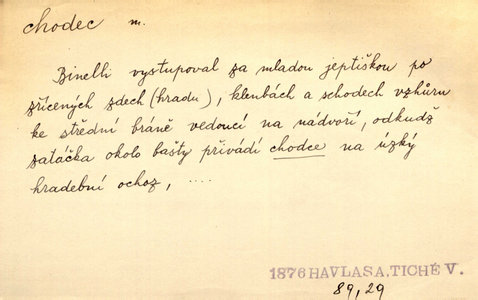 chodec m.
Binelli vystupoval za mladou jeptiškou po
zřícených zdech (hradu), klenbách a schodech vzhůru
ke střední bráně vedoucí na nádvoří, odkudž
zatáčka okolo bašty přivádí chodce na úzký
hradební ochoz, ....
1876 HAVLASA. TICHÉ V.
89, 29